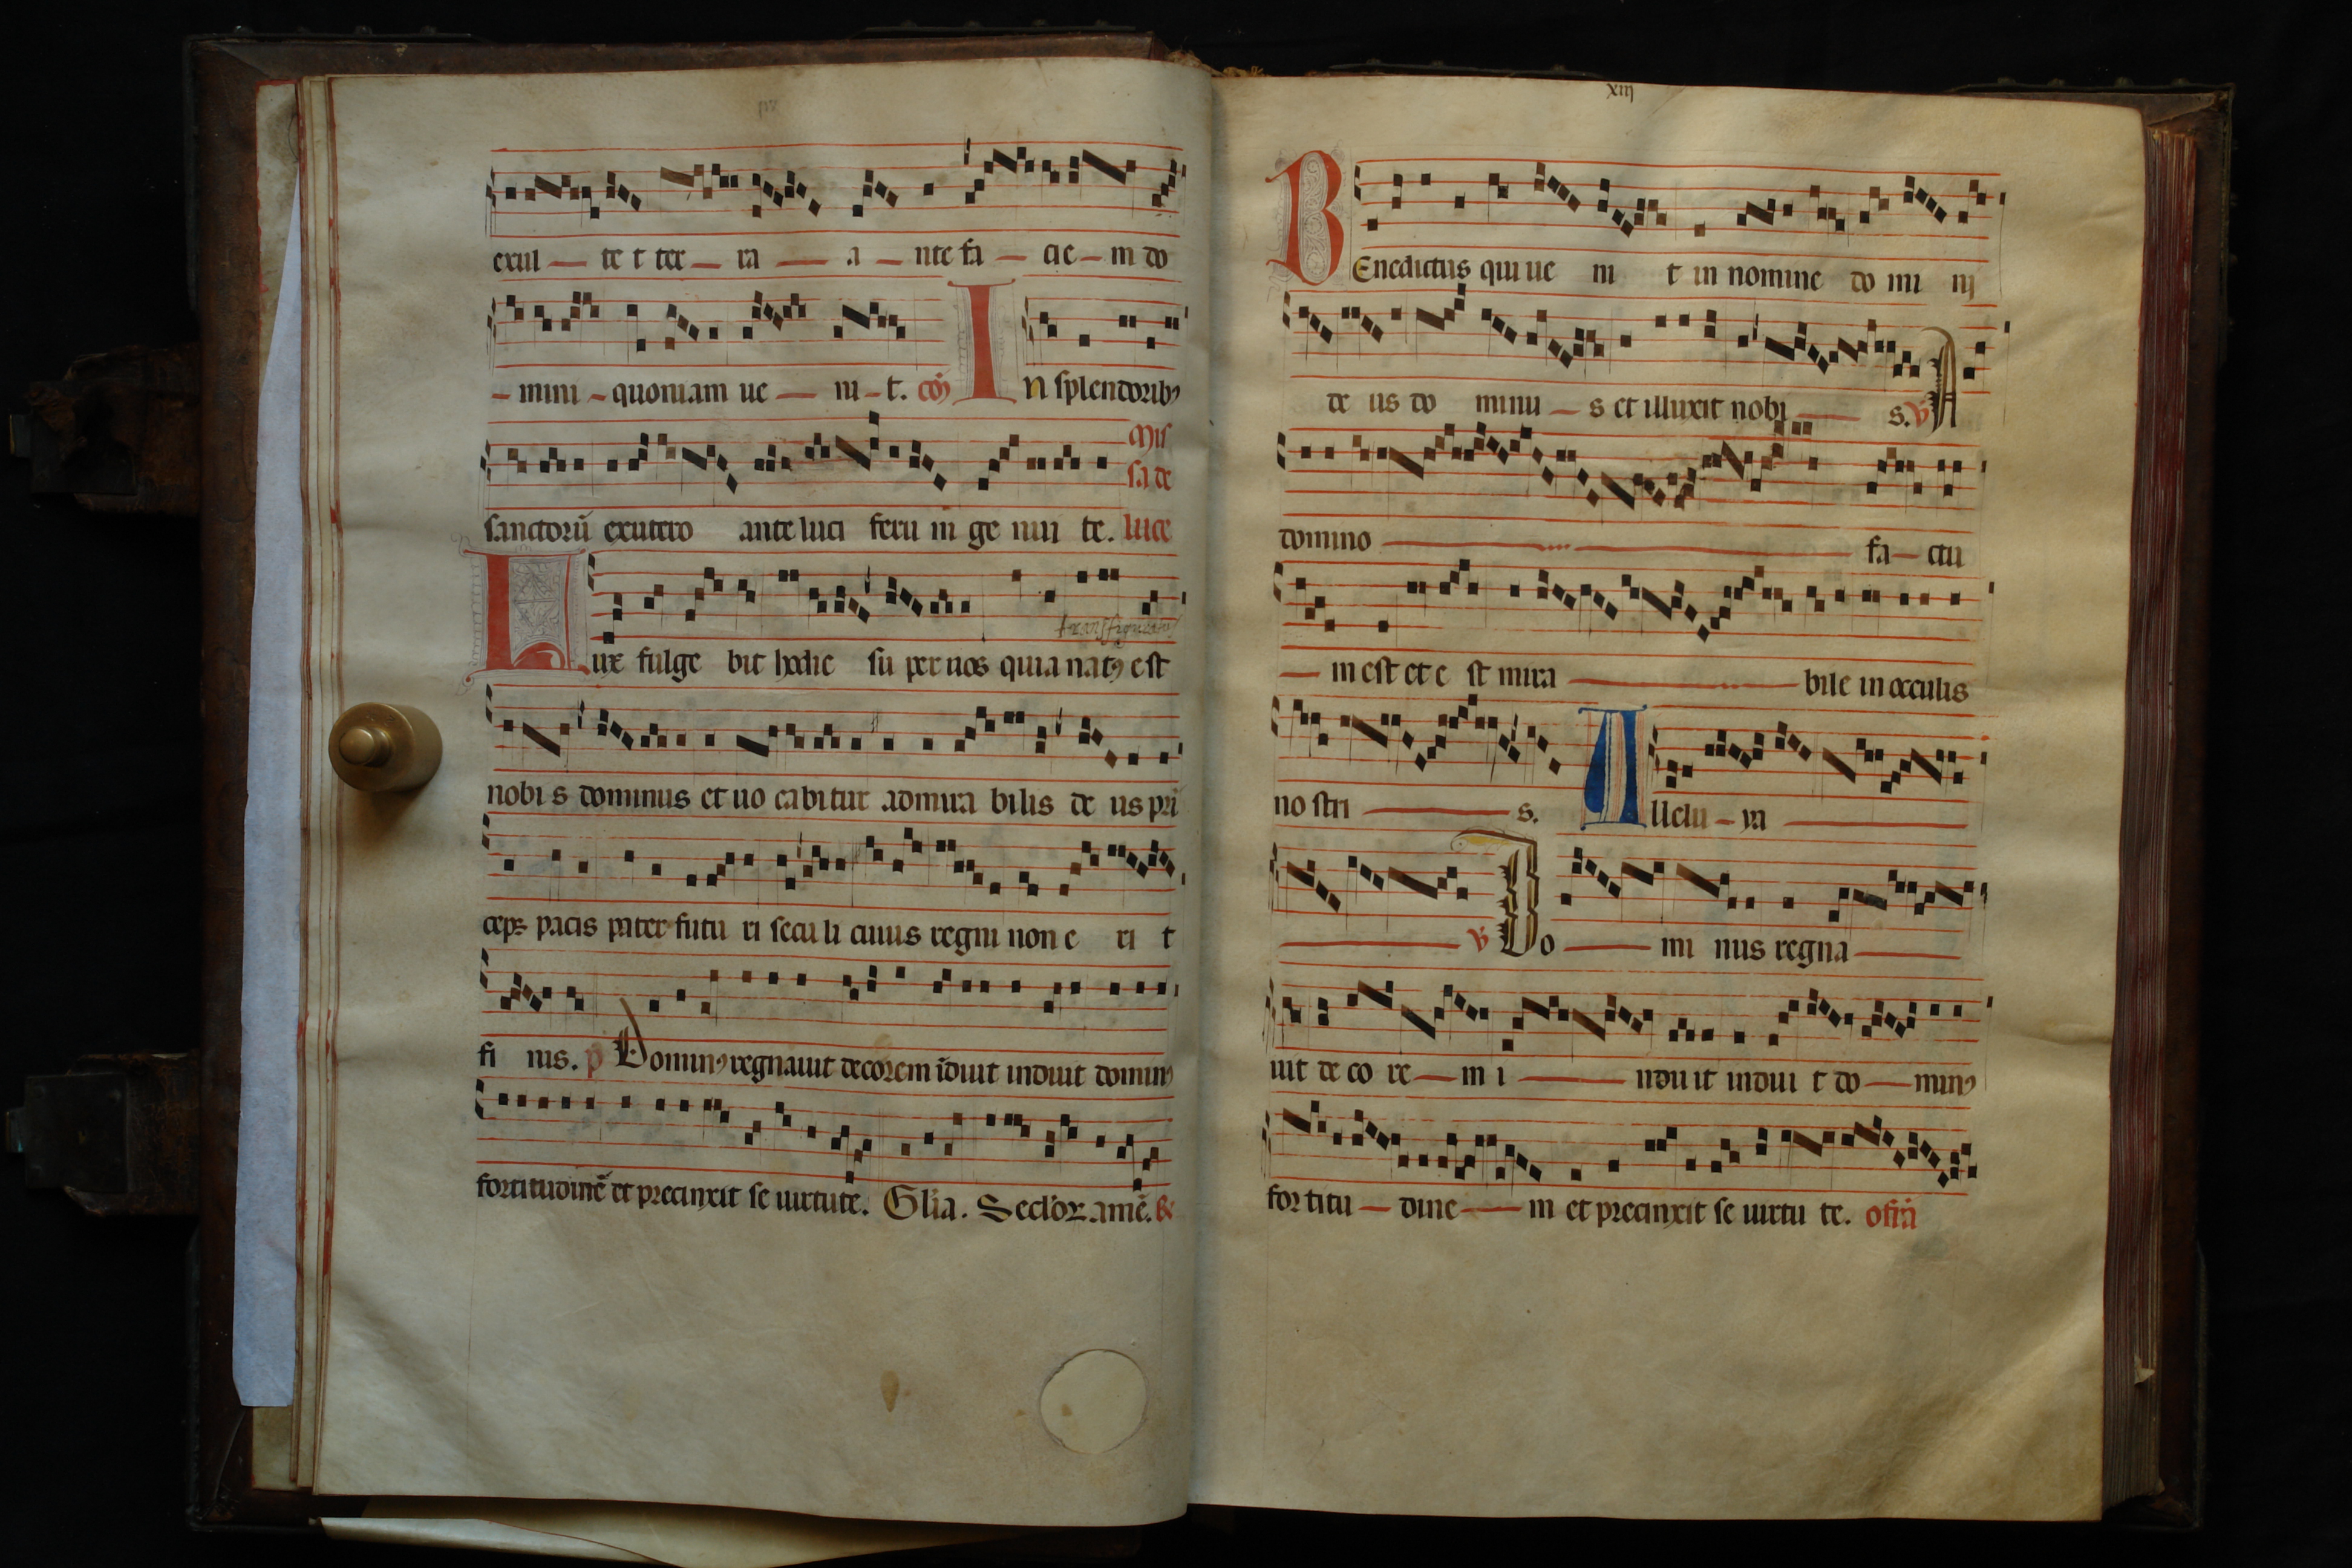 exul — te t ter — ra — a — nte fa — cie — m do
— mini — quoniam ue — ni — t. cō In splendoribꝰ
Mis
sa de
sanctorū exutero ante luci feru m ge nui te. luce
transfiguratio
Lux fulge bit hodie su per nos quia natꝰ est
nobi s dominus et uo cabitur admira bilis de us pri
ceps pacis pater futu ri secu li cuius regni non e ri t
fi nis. p̄ Dominꝰ regnauit decorem īduit induit dominꝰ
fortitudinē et precinxit se uirtute. Glīa. Seclōꝝ amē. ℟
xiij
BEnedictus qui ue ni t in nomine do mi nj
de us do minu — s et illuxit nobi — s. ℣ A
domino — fa — ctu
— m est et e st mira — bile in occulis
no stri — s. Allelu — ya —
— ℣ Do — mi nus regna —
uit de co re — m i — nduit indui t do — minꝰ
for titu — dine — m et precinxit se uirtu te. offrā